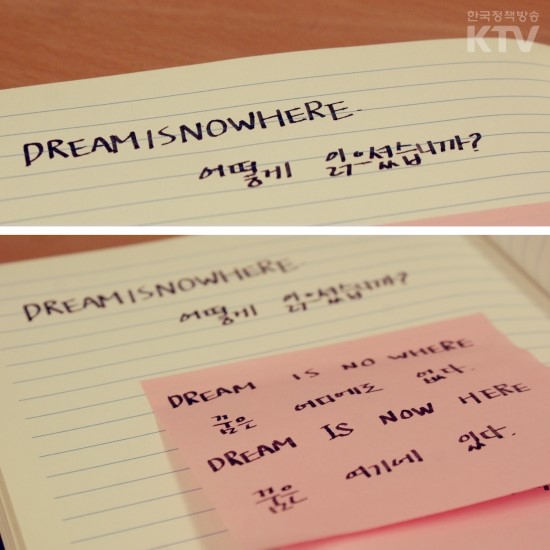 한국정책방송
KTV
DREAMISNOWHERE.
어떻게 읽으셨습니까?
DREAMISNOWHERE
어떻게 읽으셨습니까?
DREAM IS NO WHERE
꿈은 어디에도 없다.
DREAM IS NOW HERE
꿈은 여기에 있다.